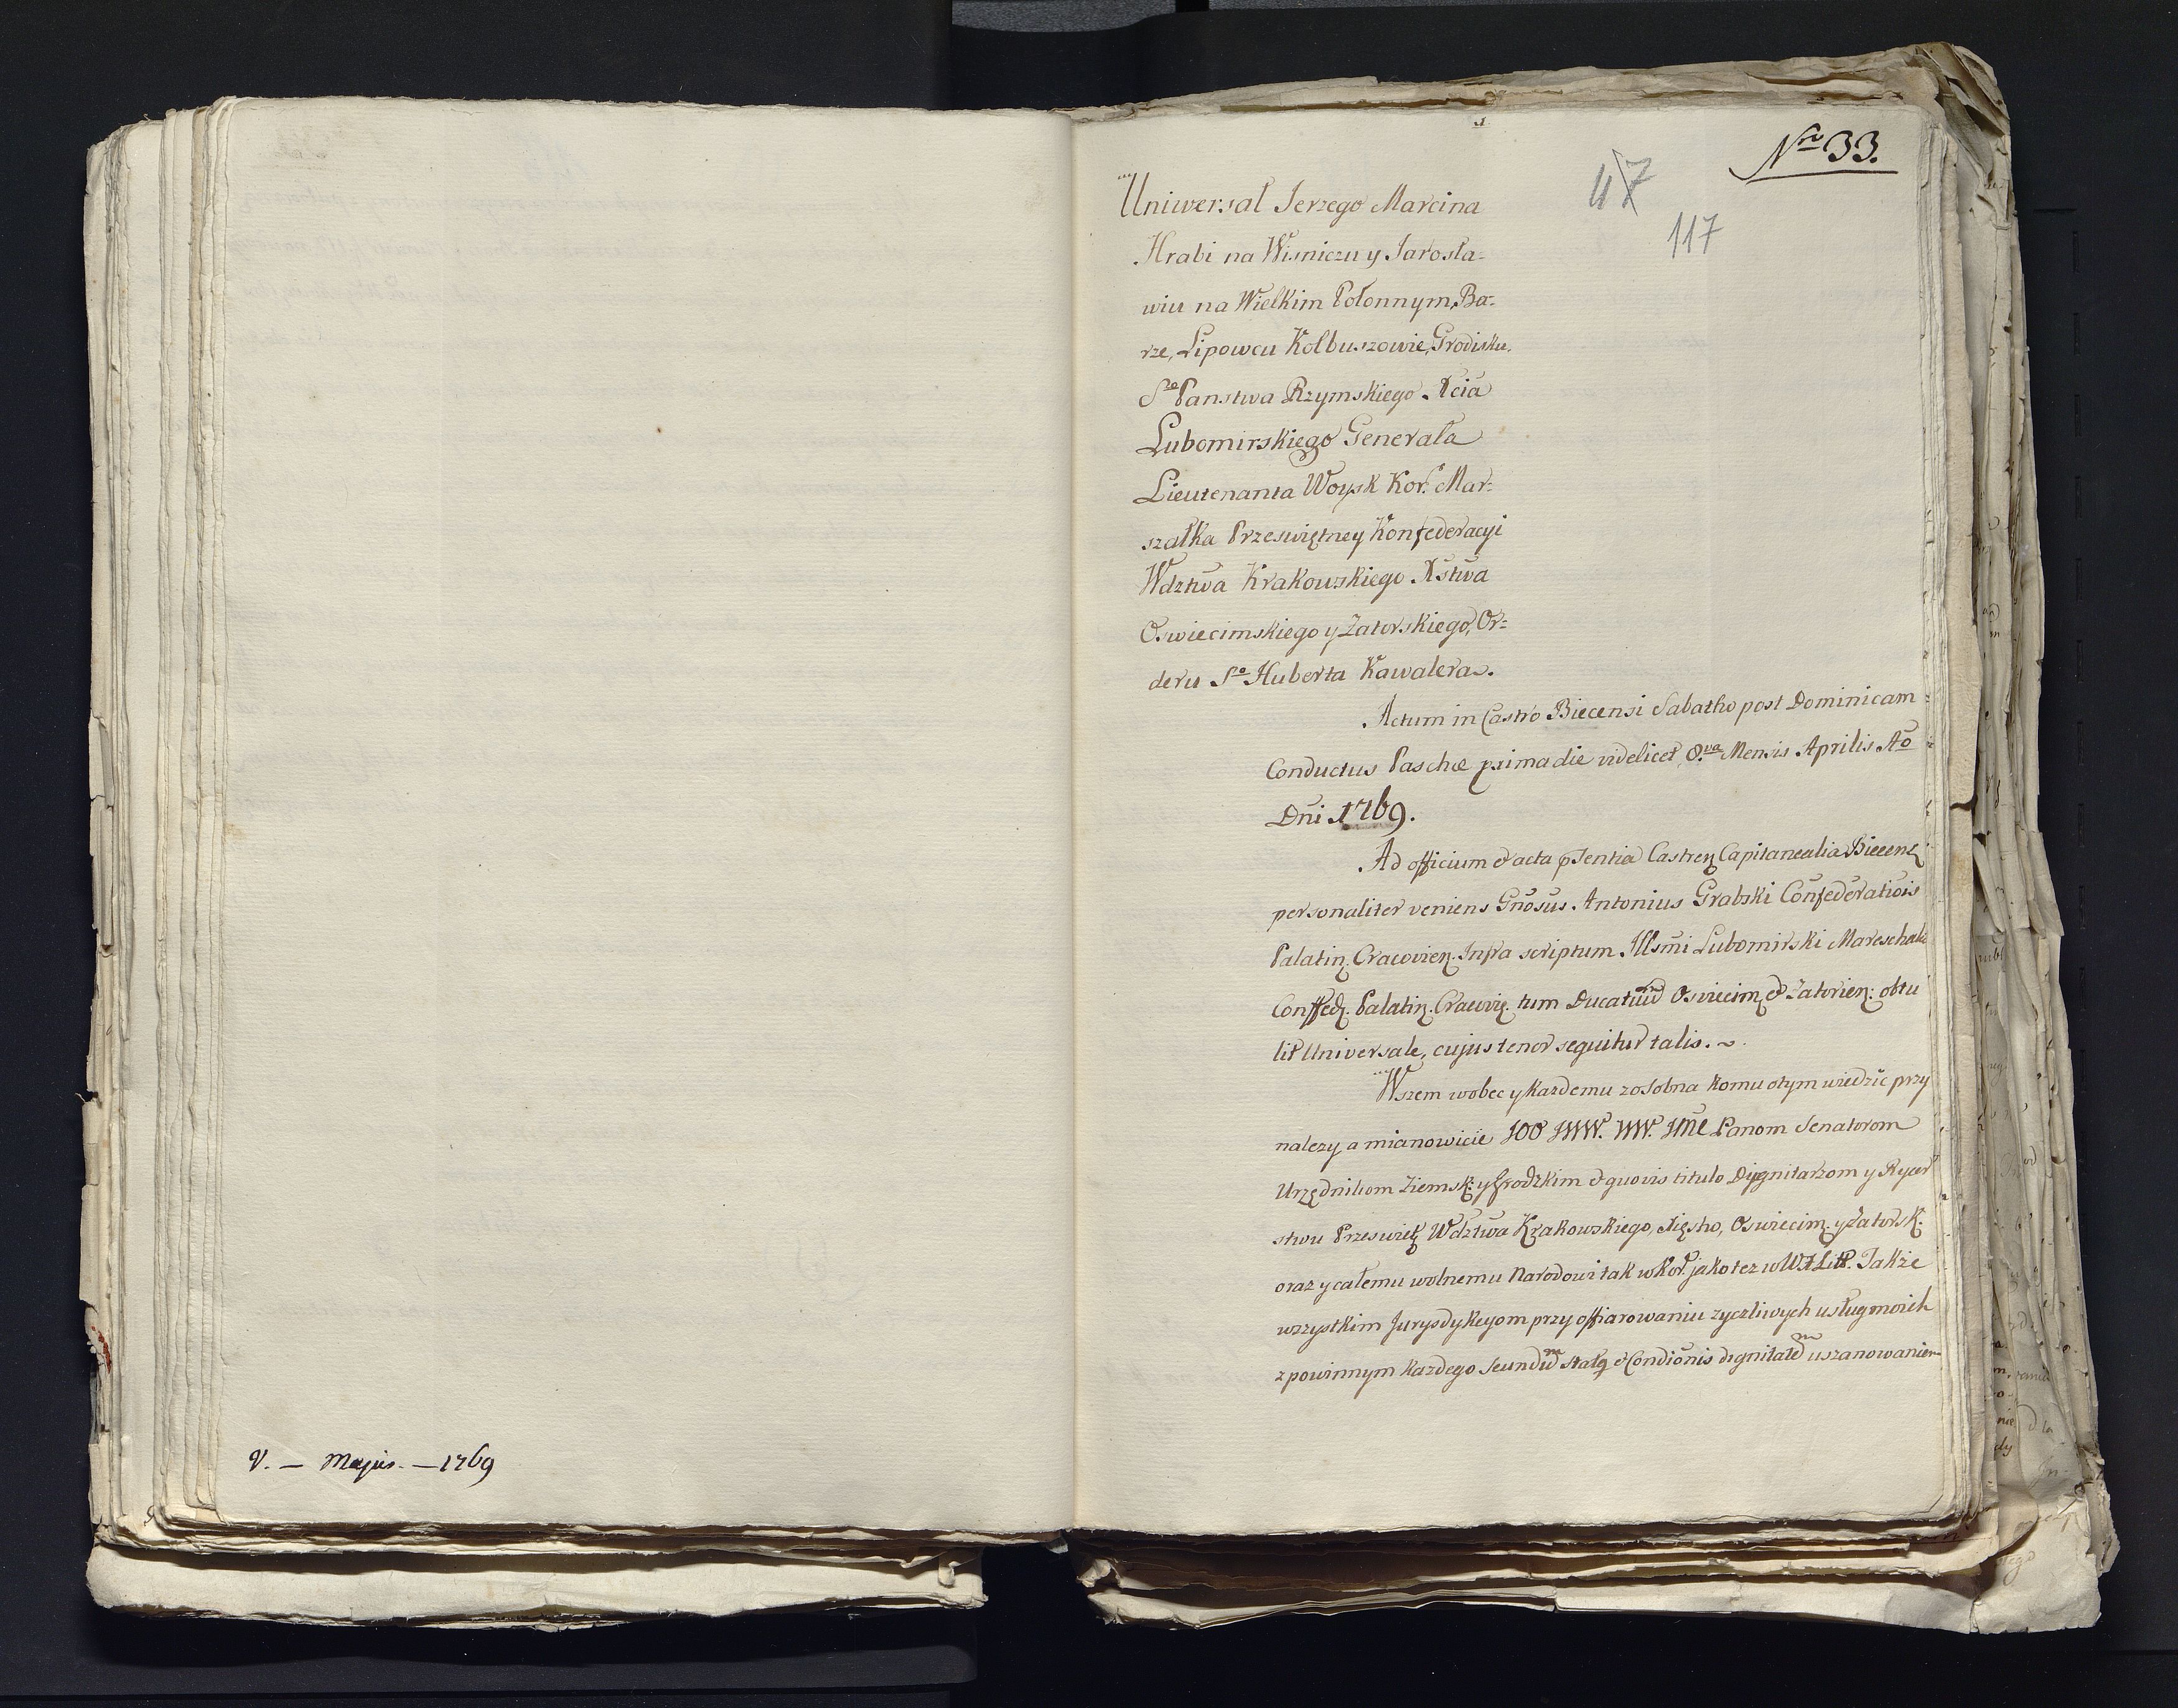 V. — Majus. — 1769
Nro 33.
47
117
Uniwersał Jerzego Marcina
Hrabi na Wisniczu y Jarosła-
wiu na Wielkim Połonnym, Ba-
rze, Lipowcu Kolbuszowie, Grodisku,
Sgo Panstwa Rzymskiego Xcia
Lubomirskiego Generała
Lieutenanta Woysk Kor. Mar-
szałka Przeswiętney Konfederacyi
Wdztwa Krakowskiego Xstwa
Oswiecimskiego y Zatorskiego, Or-
deru So Huberta Kawalera.
Actum in Castro Biecensi Sabatho post Dominicam
Conductus Paschæ prima die videlicet 8va Mensis Aprilis Ao
Dni 1769.
Ad officium & acta psentia Castren Capitanealia Biecen
personaliter veniens Gnosus Antonius Grabski Confederatiois
Palatin. Cracovien. Infra scriptum Illsmi Lubomirski Mareschalci
Conffed. Palatin. Cracovie. tum Ducatuum Osviecim & Zatorien: obtu
lit Universale, cujus tenor sequitur talis. ~
Wszem wobec y kazdemu zosobna komu otym wiedzic przy
nalezy, a mianowicie JOO JWW. WW. JMC Panom Senatorom
Urzędnikom Ziemsk: y Grodzkim & quovis titulo Dygnitarzom y Rycer
stwu Przeswięt Wdztwa Krakowskiego, Xięstw, Oswiecim. y Zatorsk.
oraz y całemu wolnemu Narodowi tak w Kor. jako tez w W. X. Litt. Takze
wszystkim Jurysdykcyom przy offiarowaniu zyczliwych usług moich
z powinnym kazdego Secundum statq & Condionis dignitatem uszanowaniem